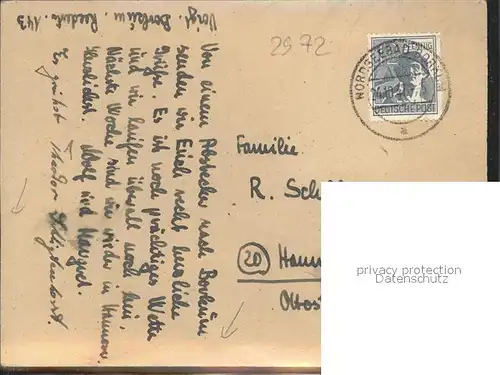 Voigt. Borkum. Reedestr. 143
Von einem Abstecher nach Borkum
senden wir Euch recht herzliche
Grüße. Es ist noch prächtiges Wetter
und wir laufen überall noch hin.
Nächste Woche sind wir wieder in Hannover.
Herzlichst. Adolf und Margret.
Es grüßt Theodor
2972
NORDSEEBAD BORKUM
PFENNIG
DEUTSCHE POST
a
Familie
R. Sch
20 Hann
Ottos
privacy protection
Datenschutz